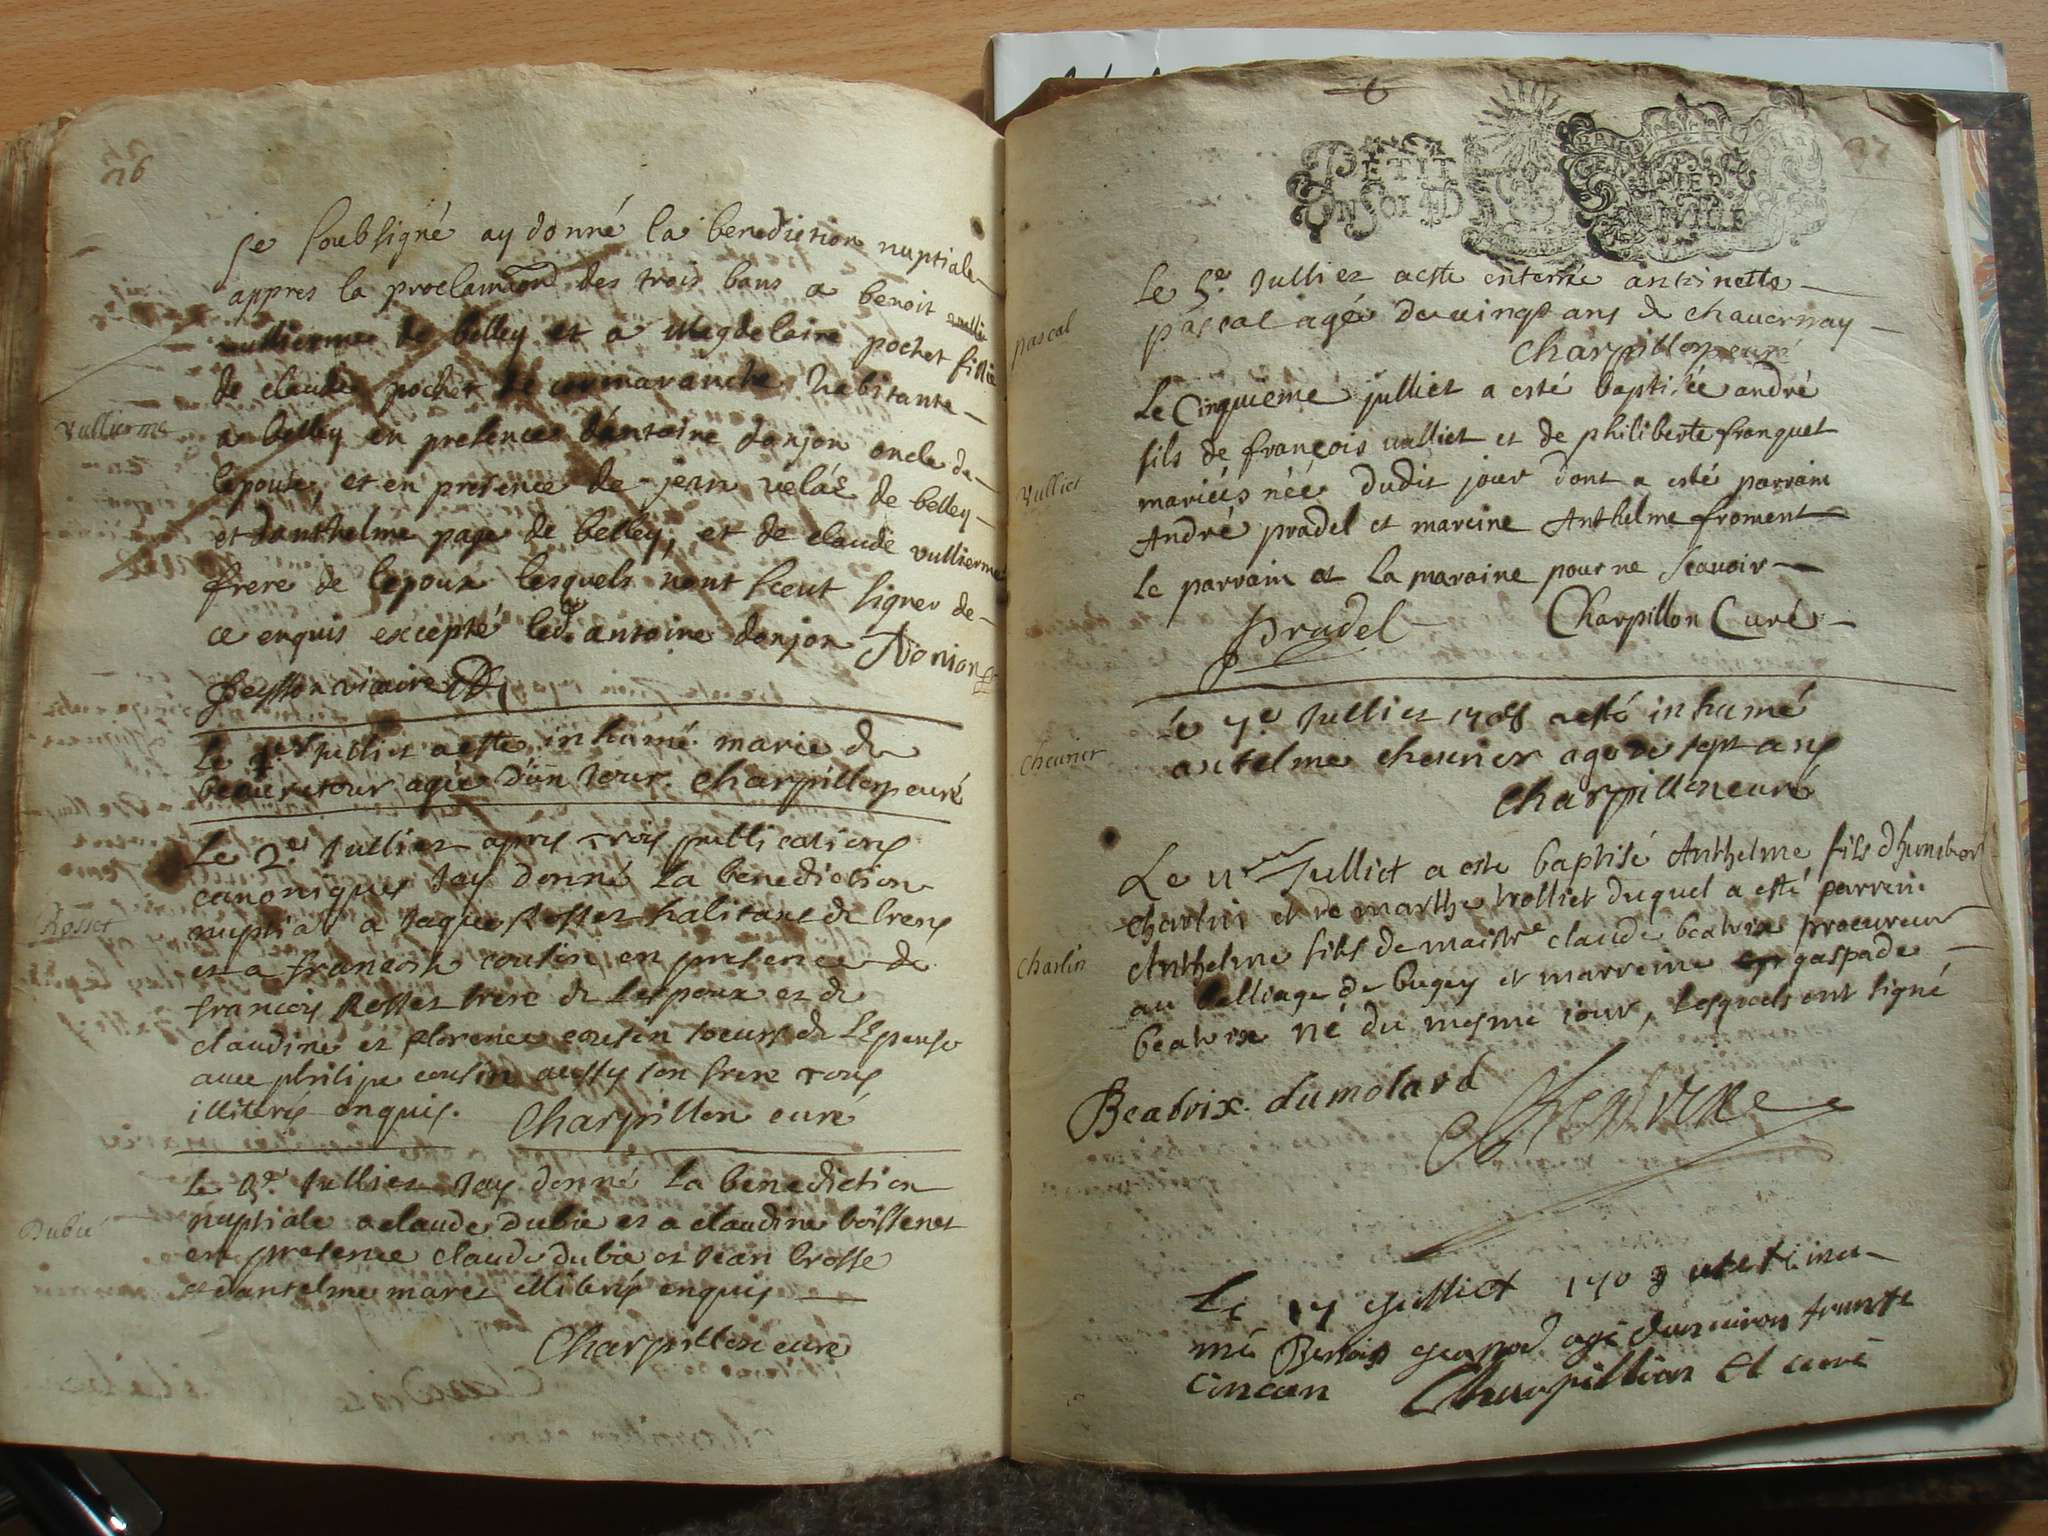 26
Je soubsigné ay donné la benediction nuptiale
appres la proclamaon des trois bans a benoit
vullierme de belley et a Magdelaine pochet fille
de claude pochet de cormaranche habitante
Vullierme
a belley en presence d'antoine donjon oncle de
lepouse, et en presence de jean velás de belley
et danthelme page de belley, et de claude vullierme
frere de lepoux lesquels nont sceut signer de
ce enquis excepté led. antoine donjon
Peysson vicaire
Le 1er Julliet a este inhumé marie de
beauretour agée d'un Jour. Charpillon curé
Le 2e Julliet apres trois publications
canoniques Jay donné la benediction
Rosset
nuptial a Jaques Rosset habitant de brens
et a francoise cousin en presence de
francois Rosset frere de Lespoux et de
claudine et florence cousin soeurs de Lespouse
avec philipe cousin aussy son frere tous
illiterés enquis. Charpillon curé
Le 3e Julliet Jay donné La benediction
Dubié
nuptiale a claude dubie et a claudine boissenet
en presence claude dubie et Jean brosse
et dantelme maret illiterés enquis
Charpillon curé
6
PETIT
PAPIER
27
Le 5e Julliet a este enterré antoinette
Pascal
pascal agée de vingt ans de chavernay
Charpillon curé
Le Cinquieme julliet a esté baptisée andré
fils de françois vulliet et de philiberte franquet
Vulliet
mariés née dudit jour dont a esté parrain
André pradel et mareine Anthelme froment
Le parrain et La maraine pour ne scavoir
Pradel Charpillon Curé
Le 7e Julliet 1708 a esté inhumé
Chevrier
antelme chevrier agé de sept ans
Charpillon curé
Le 11e Julliet a este baptisé Anthelme fils d'humbert
charlin et de marthe trolliet duquel a esté parrein
Charlin
Anthelme fils de maistre claude beatrix procureur
au balliage de bugey et marreine gaspade
beatrix né du mesme iour, Lesquels ont signé
Beatrix dumolard Beatrix
Le 17 Julliet 1708 a esté inhu
mé Benoit agé d'environ trante
cinc an Charpillion curé